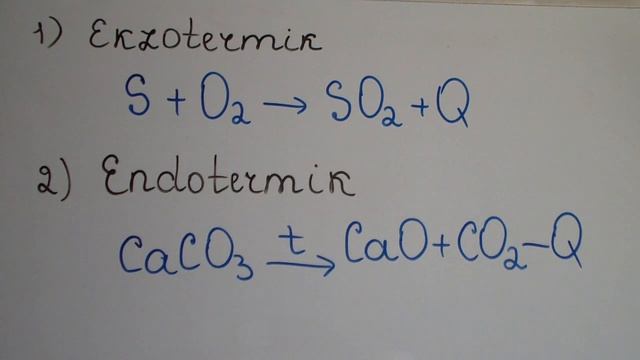 1) Ekzotermik
S + O₂ → SO₂ + Q
2) Endotermik
CaCO₃ →ᵗ CaO + CO₂ – Q